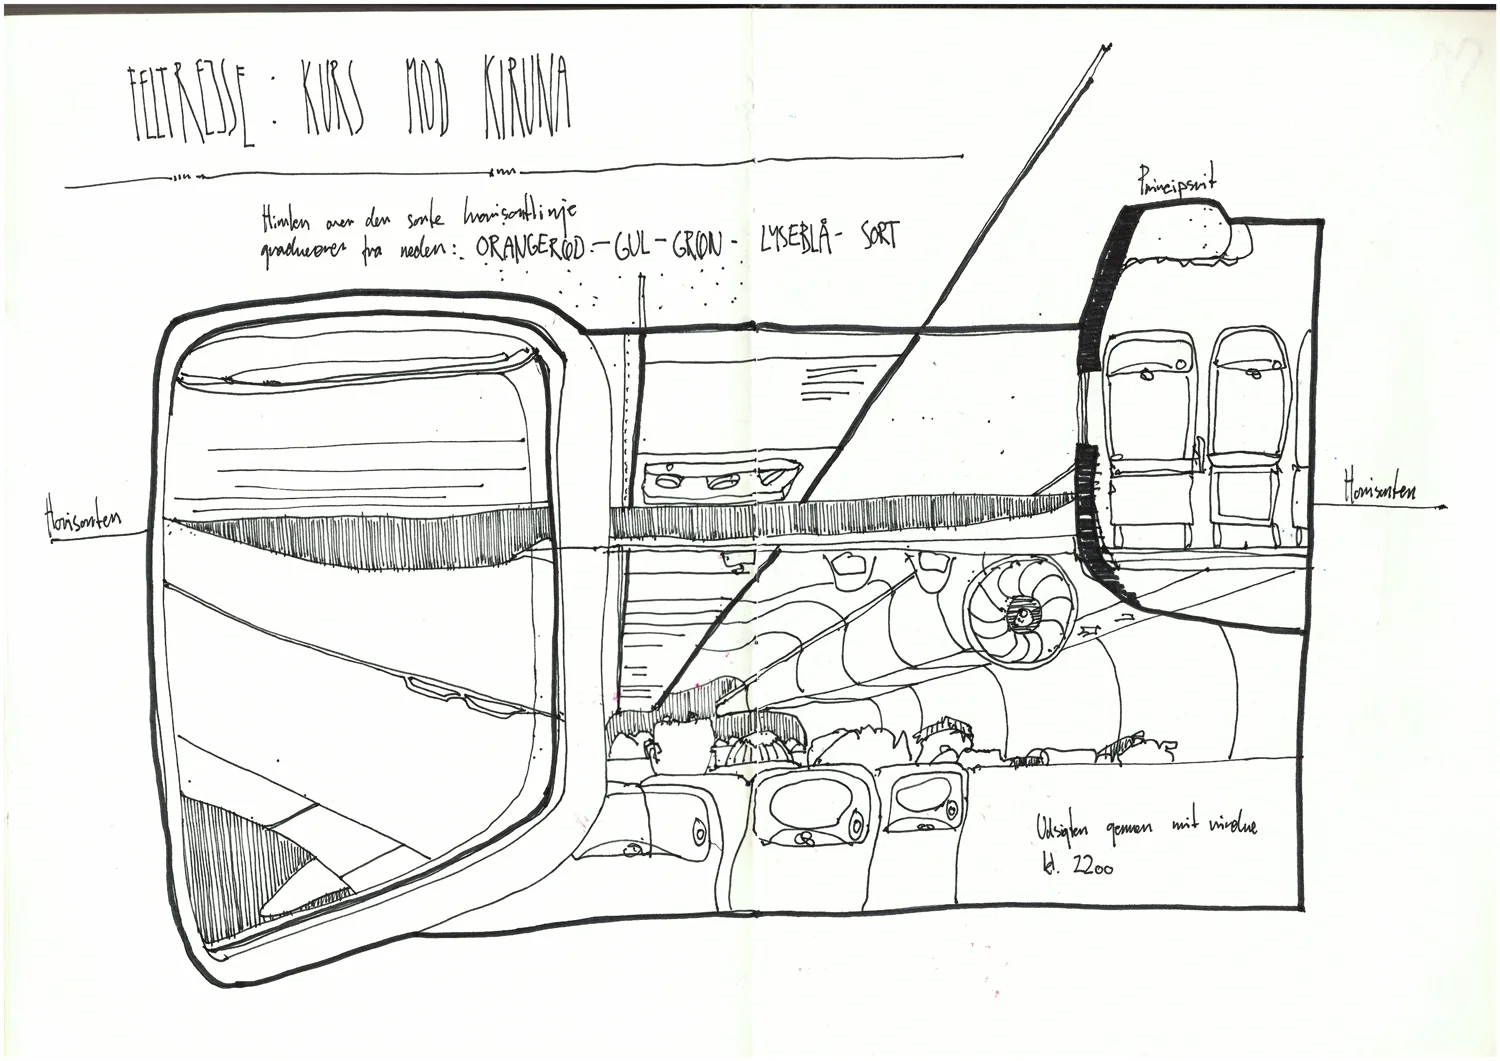 FELTREJSE : KURS MOD KIRUNA
Himlen over den sorte horisontlinje
graduerer fra neden: ORANGERØD - GUL - GRØN - LYSEBLÅ - SORT
Principsnit
Horisonten
Horisonten
Udsigten gennem mit vindue
kl. 2200